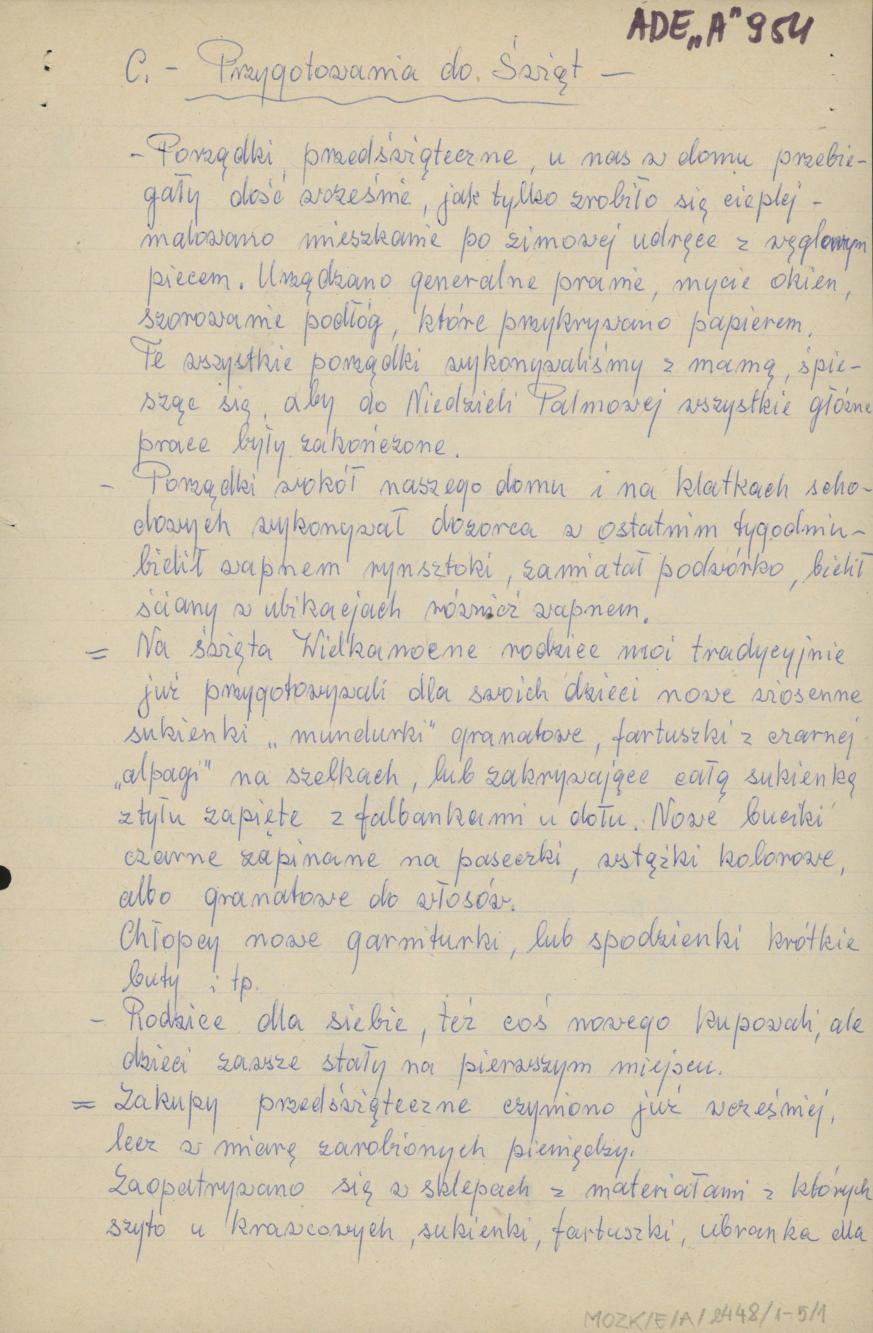 ADE„A" 954
C. - Przygotowania do Świąt -
- Porządki przedświąteczne, u nas w domu przebie-
gały dość wcześnie, jak tylko zrobiło się cieplej -
malowano mieszkanie po zimowej udręce z węglowym
piecem. Urządzano generalne pranie, mycie okien,
szorowanie podłóg, które przykrywano papierem.
Te wszystkie porządki wykonywaliśmy z mamą, śpie-
sząc się, aby do Niedzieli Palmowej wszystkie główne
prace były zakończone.
- Porządki wokół naszego domu i na klatkach scho-
dowych wykonywał dozorca w ostatnim tygodniu -
bielił wapnem rynsztoki, zamiatał podwórko, bielił
ściany w ubikacjach również wapnem.
= Na święta Wielkanocne rodzice moi tradycyjnie
już przygotowywali dla swoich dzieci nowe wiosenne
sukienki „mundurki" granatowe, fartuszki z czarnej
„alpagi" na szelkach, lub zakrywające całą sukienkę
z tyłu zapięte z falbankami u dołu. Nowe buciki
czarne zapinane na paseczki, wstążki kolorowe,
albo granatowe do włosów.
Chłopcy nowe garniturki, lub spodzienki krótkie
buty i tp.
- Rodzice dla siebie, też coś nowego kupowali, ale
dzieci zawsze stały na pierwszym miejscu.
= Zakupy przedświąteczne czyniono już wcześniej,
lecz w miarę zarobionych pieniędzy.
Zaopatrywano się w sklepach z materiałami z których
szyto u krawcowych, sukienki, fartuszki, ubranka dla
MOZK/E/A/2448/1-5/1